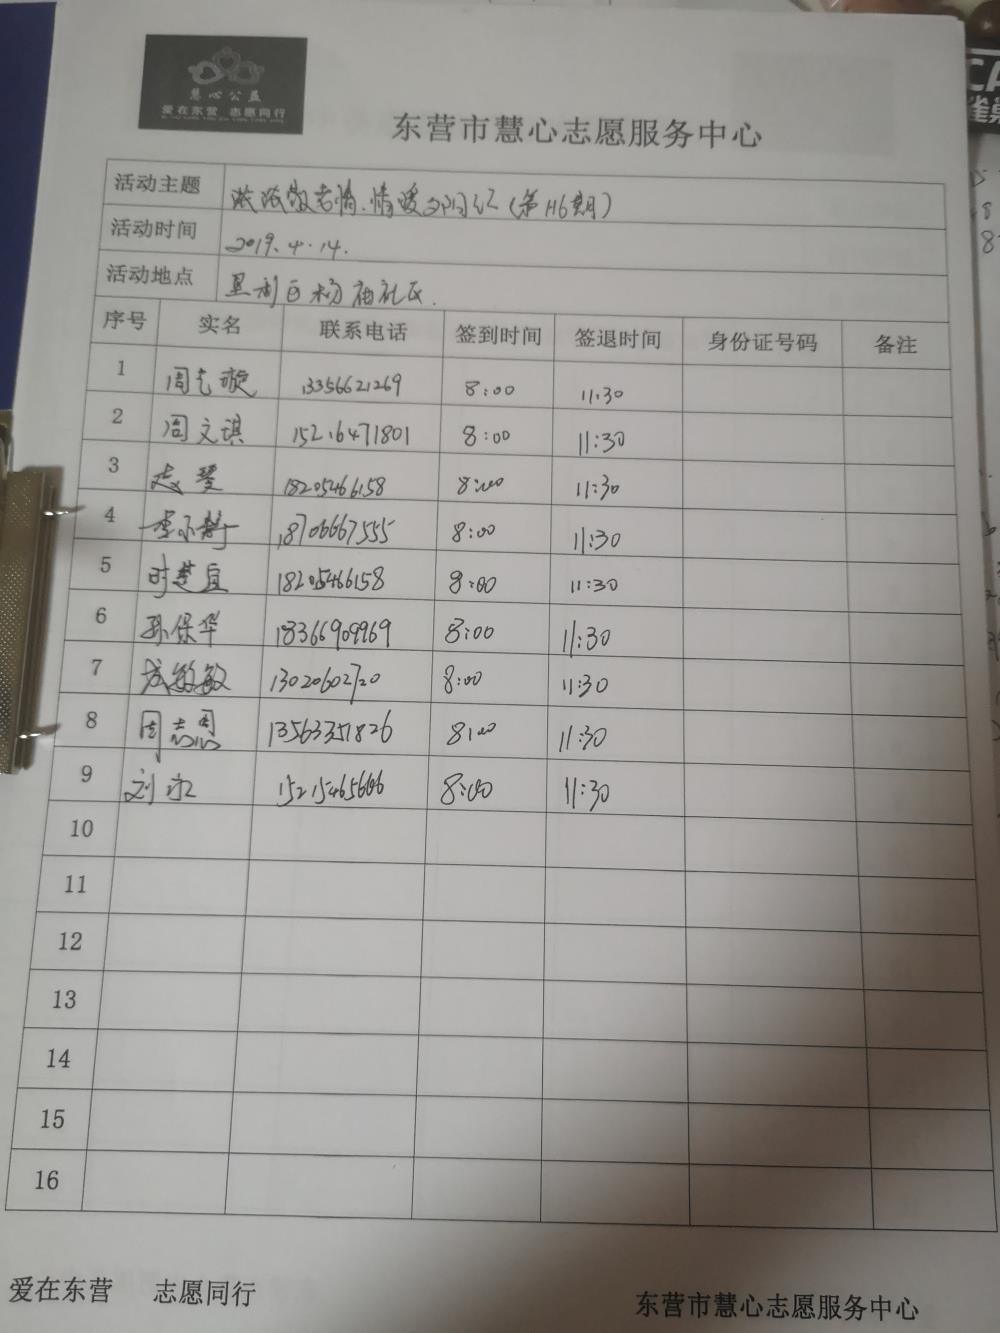 慧心公益
爱在东营 志愿同行
东营市慧心志愿服务中心
活动主题 浓浓敬老情.情暖夕阳红(第116期)
活动时间 2019.4.14.
活动地点 垦利区杨庙社区.
序号 实名 联系电话 签到时间 签退时间 身份证号码 备注
1 周志璇 13356621269 8:00 11:30
2 周文琪 15216471801 8:00 11:30
3 18205466158 8:00 11:30
4 18706667555 8:00 11:30
5 时楚宜 18205466158 8:00 11:30
6 孙保华 18366909969 8:00 11:30
7 成敏敏 13020602720 8:00 11:30
8 周志周 13563351826 8:00 11:30
9 刘冰 15215465666 8:00 11:30
10
11
12
13
14
15
16
爱在东营 志愿同行
东营市慧心志愿服务中心